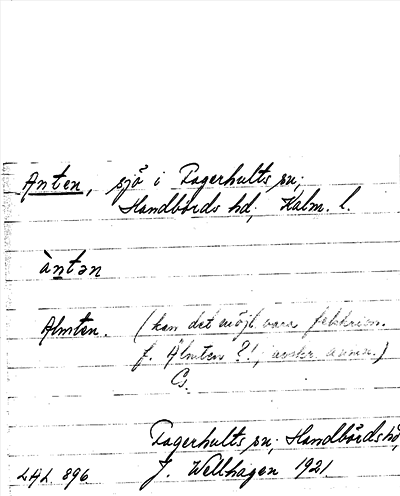 Anten, sjö i Fagerhults sn,
Handbörds hd, Kalm. l.
àntən
Almten. (kan det möjl. vara felskrivn.
f. Älmten ?!, anm.)
G.
Fagerhults sn, Handbörds hd,
LHL 896 J. Wellhagen 1921